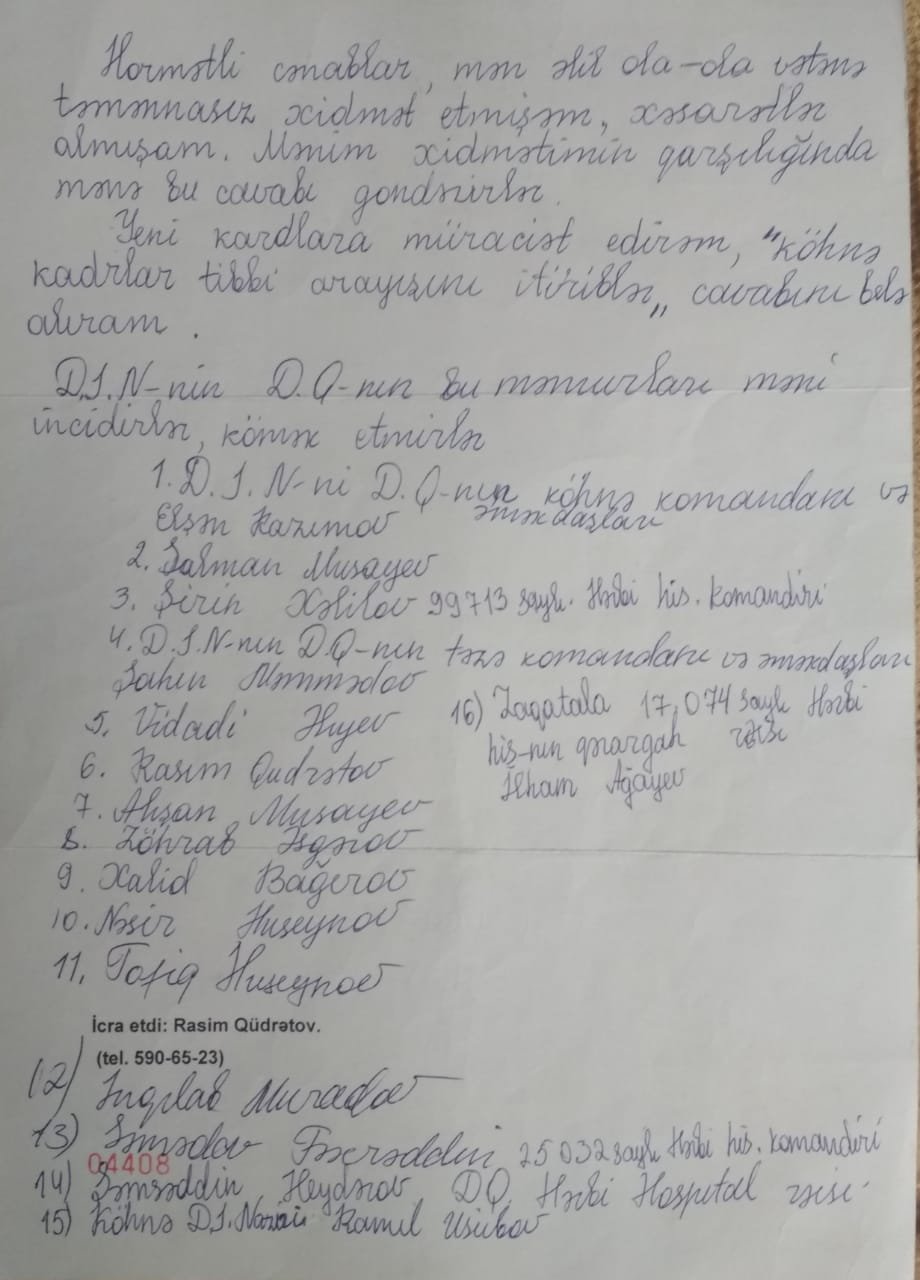 Hormətli cənablar, mən əlil ola-ola vətənə
təmənnasız xidmət etmişəm, xəsarətlər
almışam. Mənim xidmətimin qarşılığında
mənə bu cavabı gondərirlər.
Yeni kardlara müraciət edirəm, "köhnə
kadrlar tibbi arayışını itiriblər„ cavabını belə
alıram.
D.İ.N-nin D.Q-nın bu məmurları məni
incidirlər, kömək etmirlər
1. D.İ.N-ni D.Q-nın köhnə komandanı və
Elşən Kazımov əməkdaşları
2. Salman Musayev
3. Şirin Xəlilov 99713 saylı. Hərbi his. komandiri
4. D.İ.N-nın D.Q-nın təzə komandanı və əməkdaşları
Şahin Məmmədov
5. Vidadi
6. Rasim Qudrətov
7. Ahşan Musayev
8. Zöhrab Əsgərov
9. Xalid Bağırov
10. Nəsir Huseynov
11. Tofiq Huseynov
16) Zaqatala 17,074 saylı Hərbi
his-nın qərargah rəisi
İlham Ağayev
İcra etdi: Rasim Qüdrətov.
(tel. 590-65-23)
12) İnqlab Muradov
13) Səmədov Fəxrəddin 25032 saylı Hərbi his. komandiri
04408
14) Şəmsəddin Heydərov DQ. Hərbi Hospital rəisi
15) Köhnə D.İ.Naziri Ramil Usubov